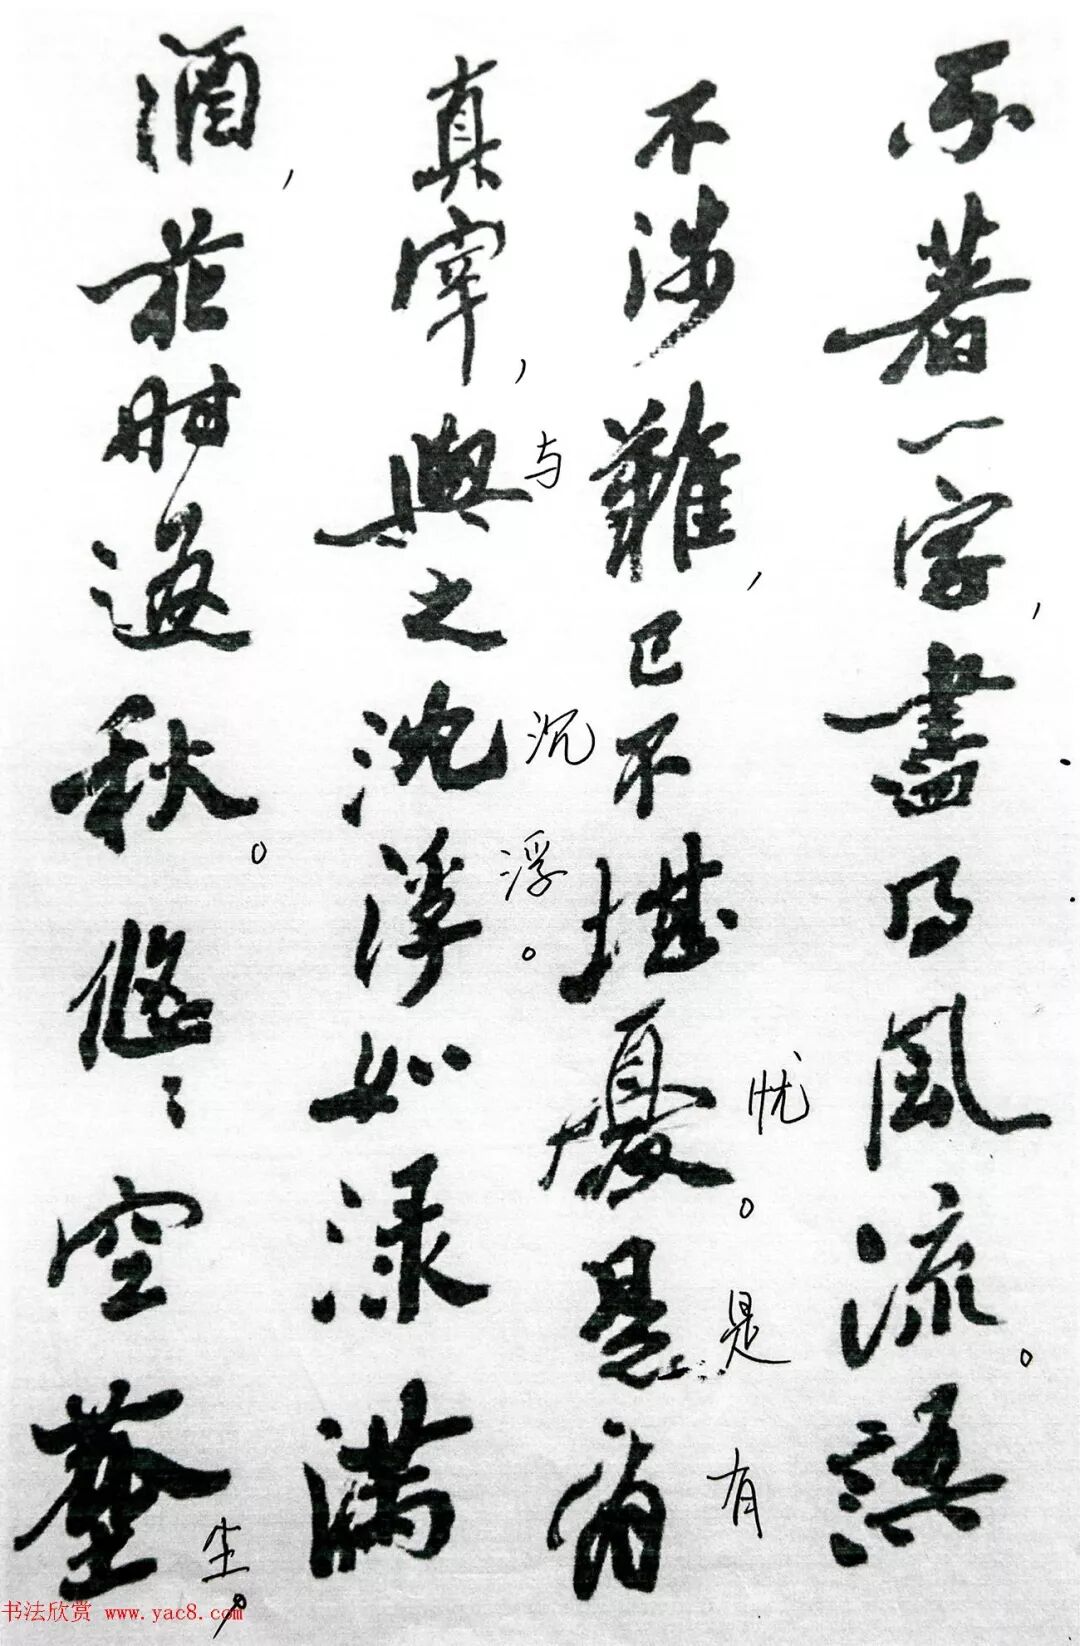 不著一字，盡得風流。語
不涉難，已不堪憂。是有
忧
是
有
真宰，與之沈浮。如渌滿
与
沉
浮
酒，花時返秋。悠〻空塵。
尘
书法欣赏 www.yac8.com